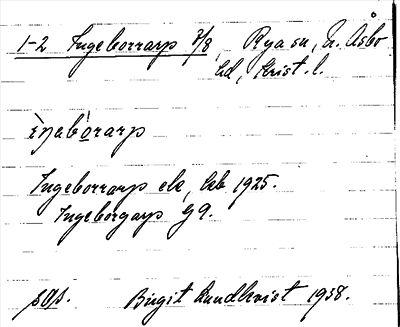 1-2 Ingeborrarp 7/8, Rya sn, N. Åsbo
hd, Krist. l.
ìŋabòrarp
Ingeborrarp ek, kb 1925.
Ingeborgarp G9.
Birgit Lundkvist 1938.